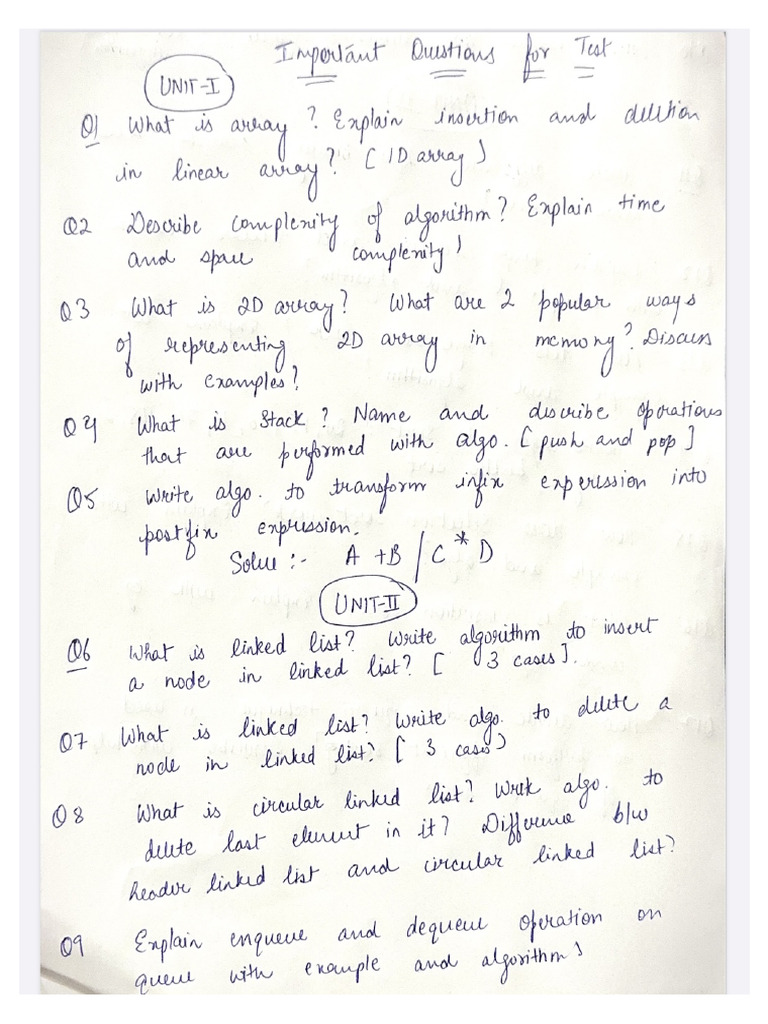 Important Questions for Test
UNIT-I
Q1 What is array? Explain insertion and deletion
in linear array? [1D array)
Q2 Describe complexity of algorithm? Explain time
and space complexity)
Q3 What is 2D array? What are 2 popular ways
of representing 2D array in memory? Discuss
with examples?
Q4 What is Stack? Name and describe operations
that are performed with algo. [push and pop]
Q5 Write algo. to transform infix experission into
postfix expression.
Solve :- A + B / C * D
UNIT-II
Q6 What is linked list? Write algorithm to insert
a node in linked list? [ 3 cases].
Q7 What is linked list? Write algo. to delete a
node in linked list? [ 3 cases)
Q8 What is circular linked list? Write algo. to
delete last element in it? Difference b/w
header linked list and circular linked list?
Q9 Explain enqueue and dequeue operation on
queue with example and algorithm)